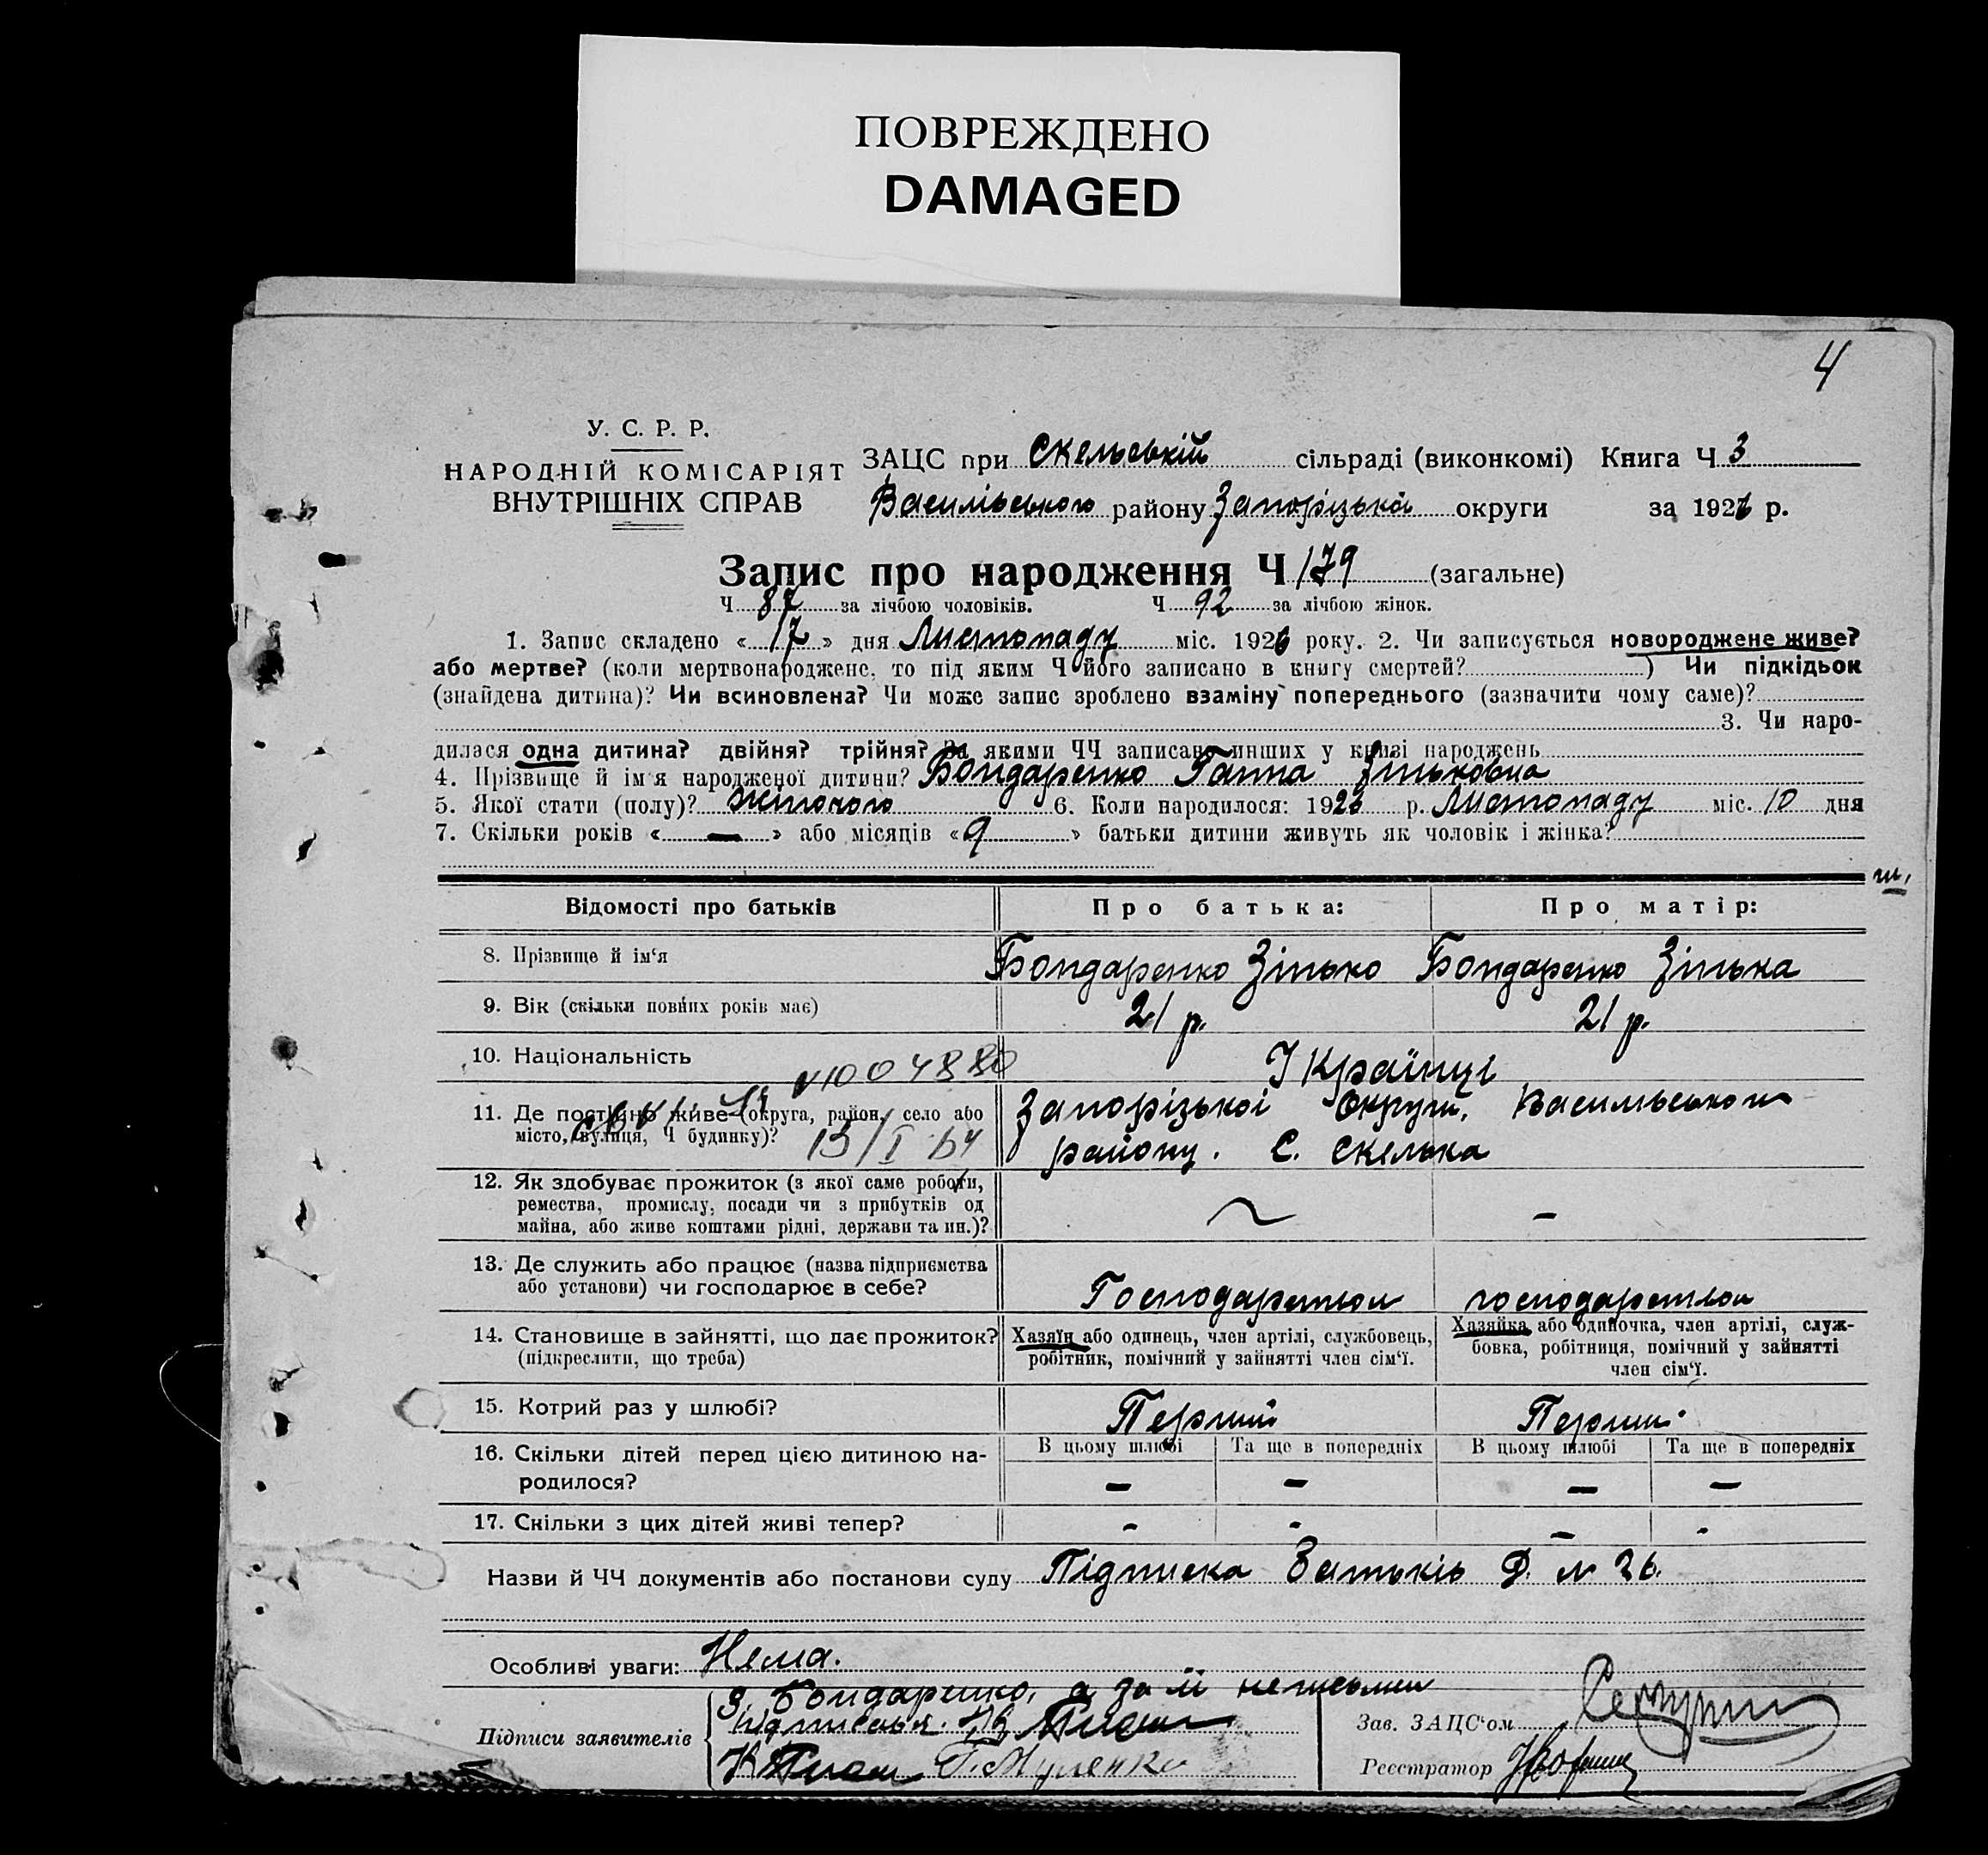 ПОВРЕЖДЕНО
DAMAGED
4
У. С. Р. Р.
НАРОДНІЙ КОМІСАРІЯТ
ВНУТРІШНІХ СПРАВ
ЗАЦС при Скельській сільраді (виконкомі) Книга Ч 3
Васильського району Запорізької округи за 1926 р.
Запис про народження Ч 179 (загальне)
Ч 87 за лічбою чоловіків. Ч 92 за лічбою жінок.
1. Запис складено « 17 » дня Листопаду міс. 1926 року. 2. Чи записується новороджене живе?
або мертве? (коли мертвонароджене, то під яким Ч його записано в книгу смертей? ) Чи підкідьок
(знайдена дитина)? Чи всиновлена? Чи може запис зроблено взаміну попереднього (зазначити чому саме)?
3. Чи наро-
дилася одна дитина? двійня? трійня? За якими ЧЧ записано инших у книзі народжень
4. Прізвище й ім'я народженої дитини? Бондаренко Ганна Зіньковна
5. Якої стати (полу)? Жіночого 6. Коли народилося: 1926 р. Листопаду міс. 10 дня
7. Скільки років « — » або місяців « 9 » батьки дитини живуть як чоловік і жінка?
Відомості про батьків Про батька: Про матір:
8. Прізвище й ім‘я Бондаренко Зінько Бондаренко Зінька
9. Вік (скільки повних років має) 21 р. 21 р.
10. Національність Українці
11. Де постійно живе (округа, район, село або Запорізької Округи, Васильського
місто, вулиця, Ч будинку)? району. С. Скелька
12. Як здобуває прожиток (з якої саме роботи,
ремества, промислу, посади чи з прибутків од
майна, або живе коштами рідні, держави та ин.)? ~ –
13. Де служить або працює (назва підприємства
або установи) чи господарює в себе? Господарством господарством
14. Становище в зайнятті, що дає прожиток? Хазяїн або одинець, член артілі, службовець, Хазяйка або одиночка, член артілі, служ-
(підкреслити, що треба) робітник, помічний у зайнятті член сім‘ї. бовка, робітниця, помічний у зайнятті
член сім‘ї.
15. Котрий раз у шлюбі? Перший Перший
16. Скільки дітей перед цією дитиною на- В цьому шлюбі Та ще в попередніх В цьому шлюбі Та ще в попередніх
родилося? – – – –
17. Скільки з цих дітей живі тепер? - - – -
Назви й ЧЧ документів або постанови суду Підписка Батьків Д. № 26.
Особливі уваги: Нема.
З. Бондаренко, а за її неписьмен
Підписи заявителів підписався
Зав. ЗАЦС‘ом
Реєстратор